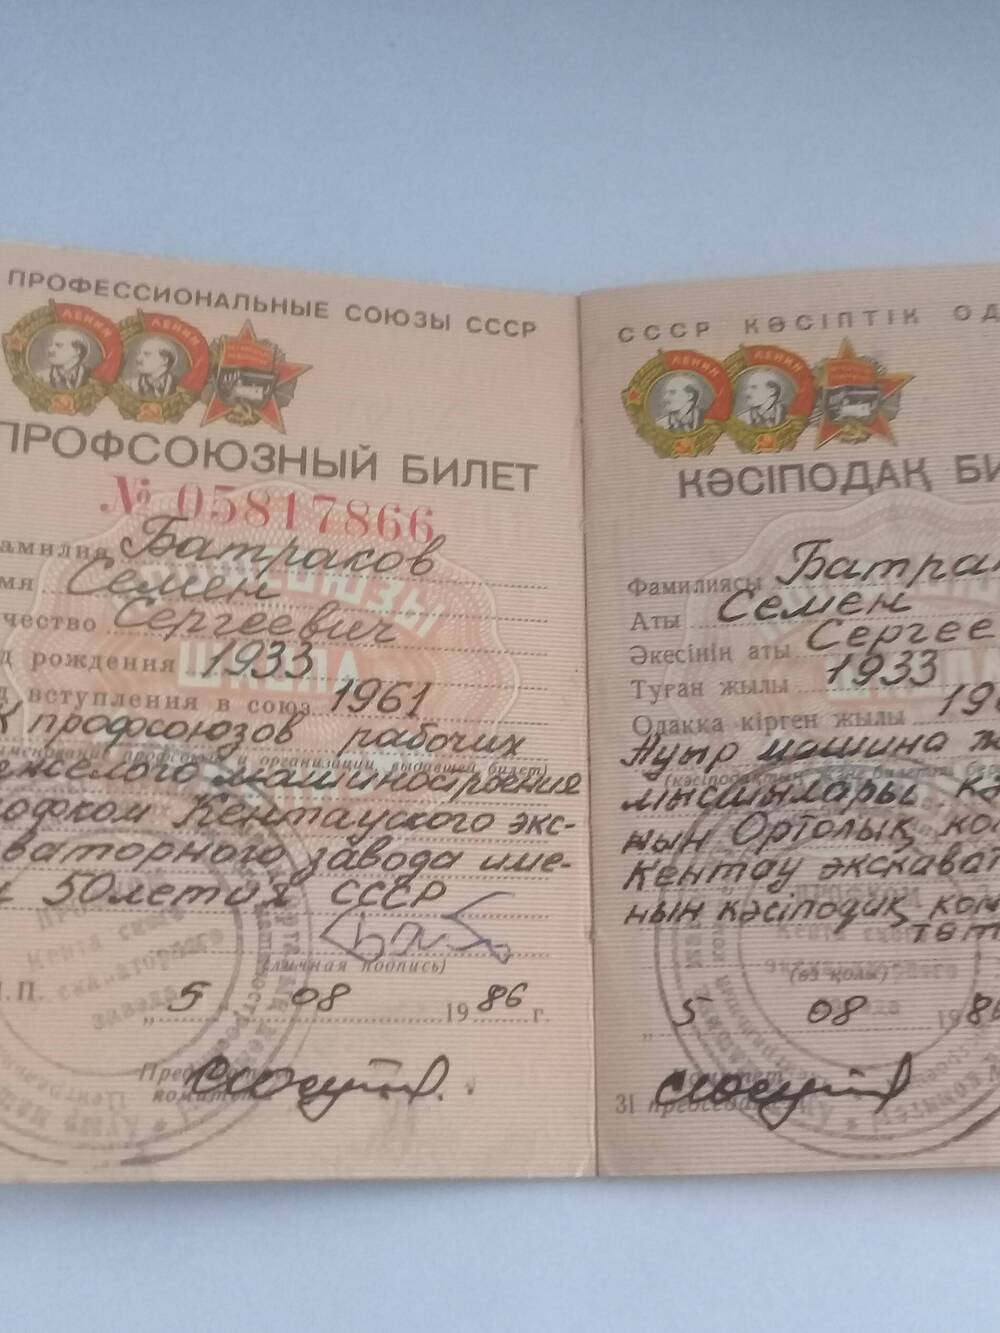 ПРОФЕССИОНАЛЬНЫЕ СОЮЗЫ СССР
ЛЕНИН ЛЕНИН
ПРОФСОЮЗНЫЙ БИЛЕТ
№ 05817866
амилия Батраков
мя Семен
чество Сергеевич
д рождения 1933
д вступления в союз 1961
К профсоюзов рабочих
именование профсоюза и организации, выдавшей билет)
яжелого машиностроения
рофком Кентауского экс-
ваторного завода име-
и 50летия СССР
(личная подпись)
.П. „ 5 08 1986 г.
Председатель
комитета
СССР КӘСІПТІК ОД
ЛЕНИН ЛЕНИН
КӘСІПОДАҚ БИ
Фамилиясы Батрак
Аты Семен
Әкесінің аты Сергее
Туған жылы 1933
Одаққа кірген жылы 19
Ауыр машина ж
мысшылары кә
нын Орталық ко
Кентау экскават
нын кәсіподақ ком
тет
(өз қолы)
„ 5 08 198
Комитет
31 председателі